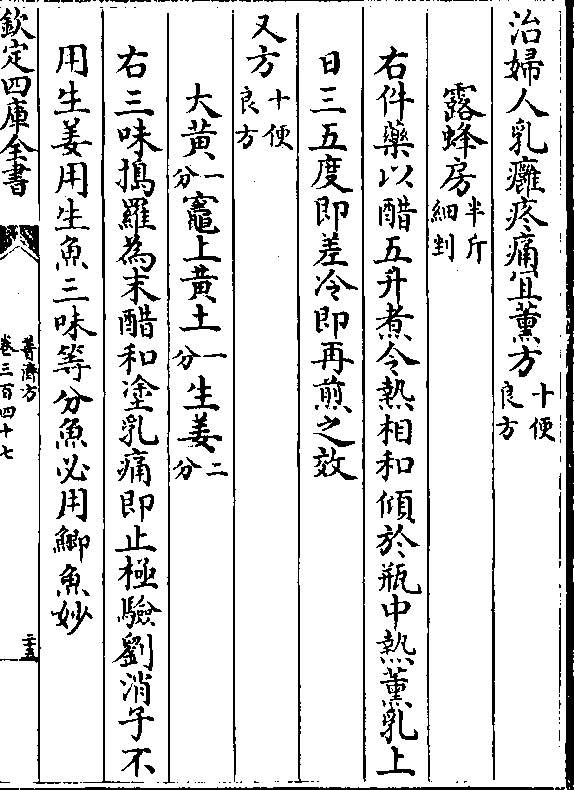 治婦人乳癰疼痛宜薰方十便良方
露蜂房半斤細剉
右件藥以醋五升煮令熱相和傾於瓶中熱薰乳上
日三五度即差冷即再煎之效
又方十便良方
大黄一分竈上黄土一分生姜二分
右三味搗羅為末醋和塗乳痛即止極驗劉消子不
用生姜用生魚三味等分魚必用鯽魚妙
欽定四庫全書
普濟方
卷三百四十七
二十五